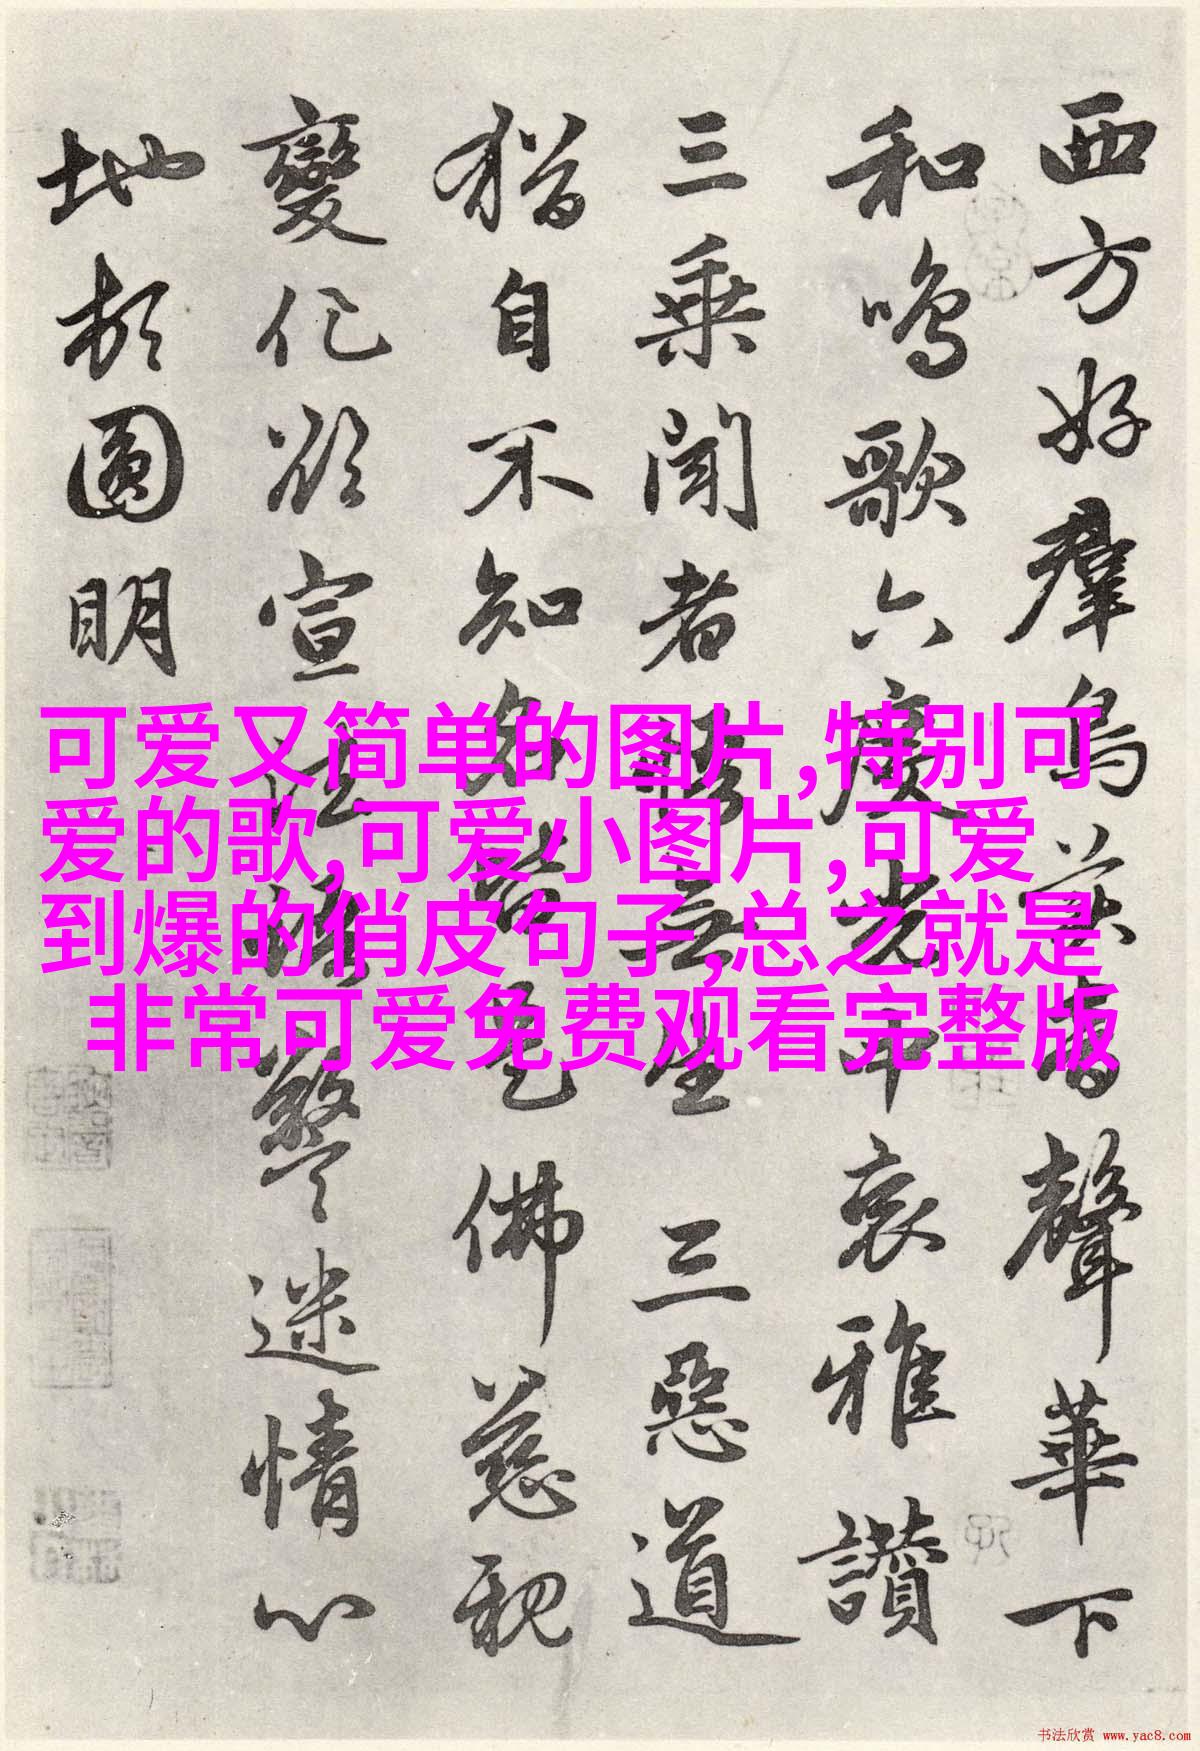 西方好群鳥美音聲華下
和鳴歌六度光中哀雅讚
三乘聞者悟無生三惡道
猶自不知名皆是佛慈親
變化欲宣法語警迷情心
地頓圓明
可爱又简单的图片,特别可
爱的歌,可爱小图片,可爱
到爆的俏皮句子,总之就是
非常可爱免费观看完整版
书法欣赏 www.yac8.com